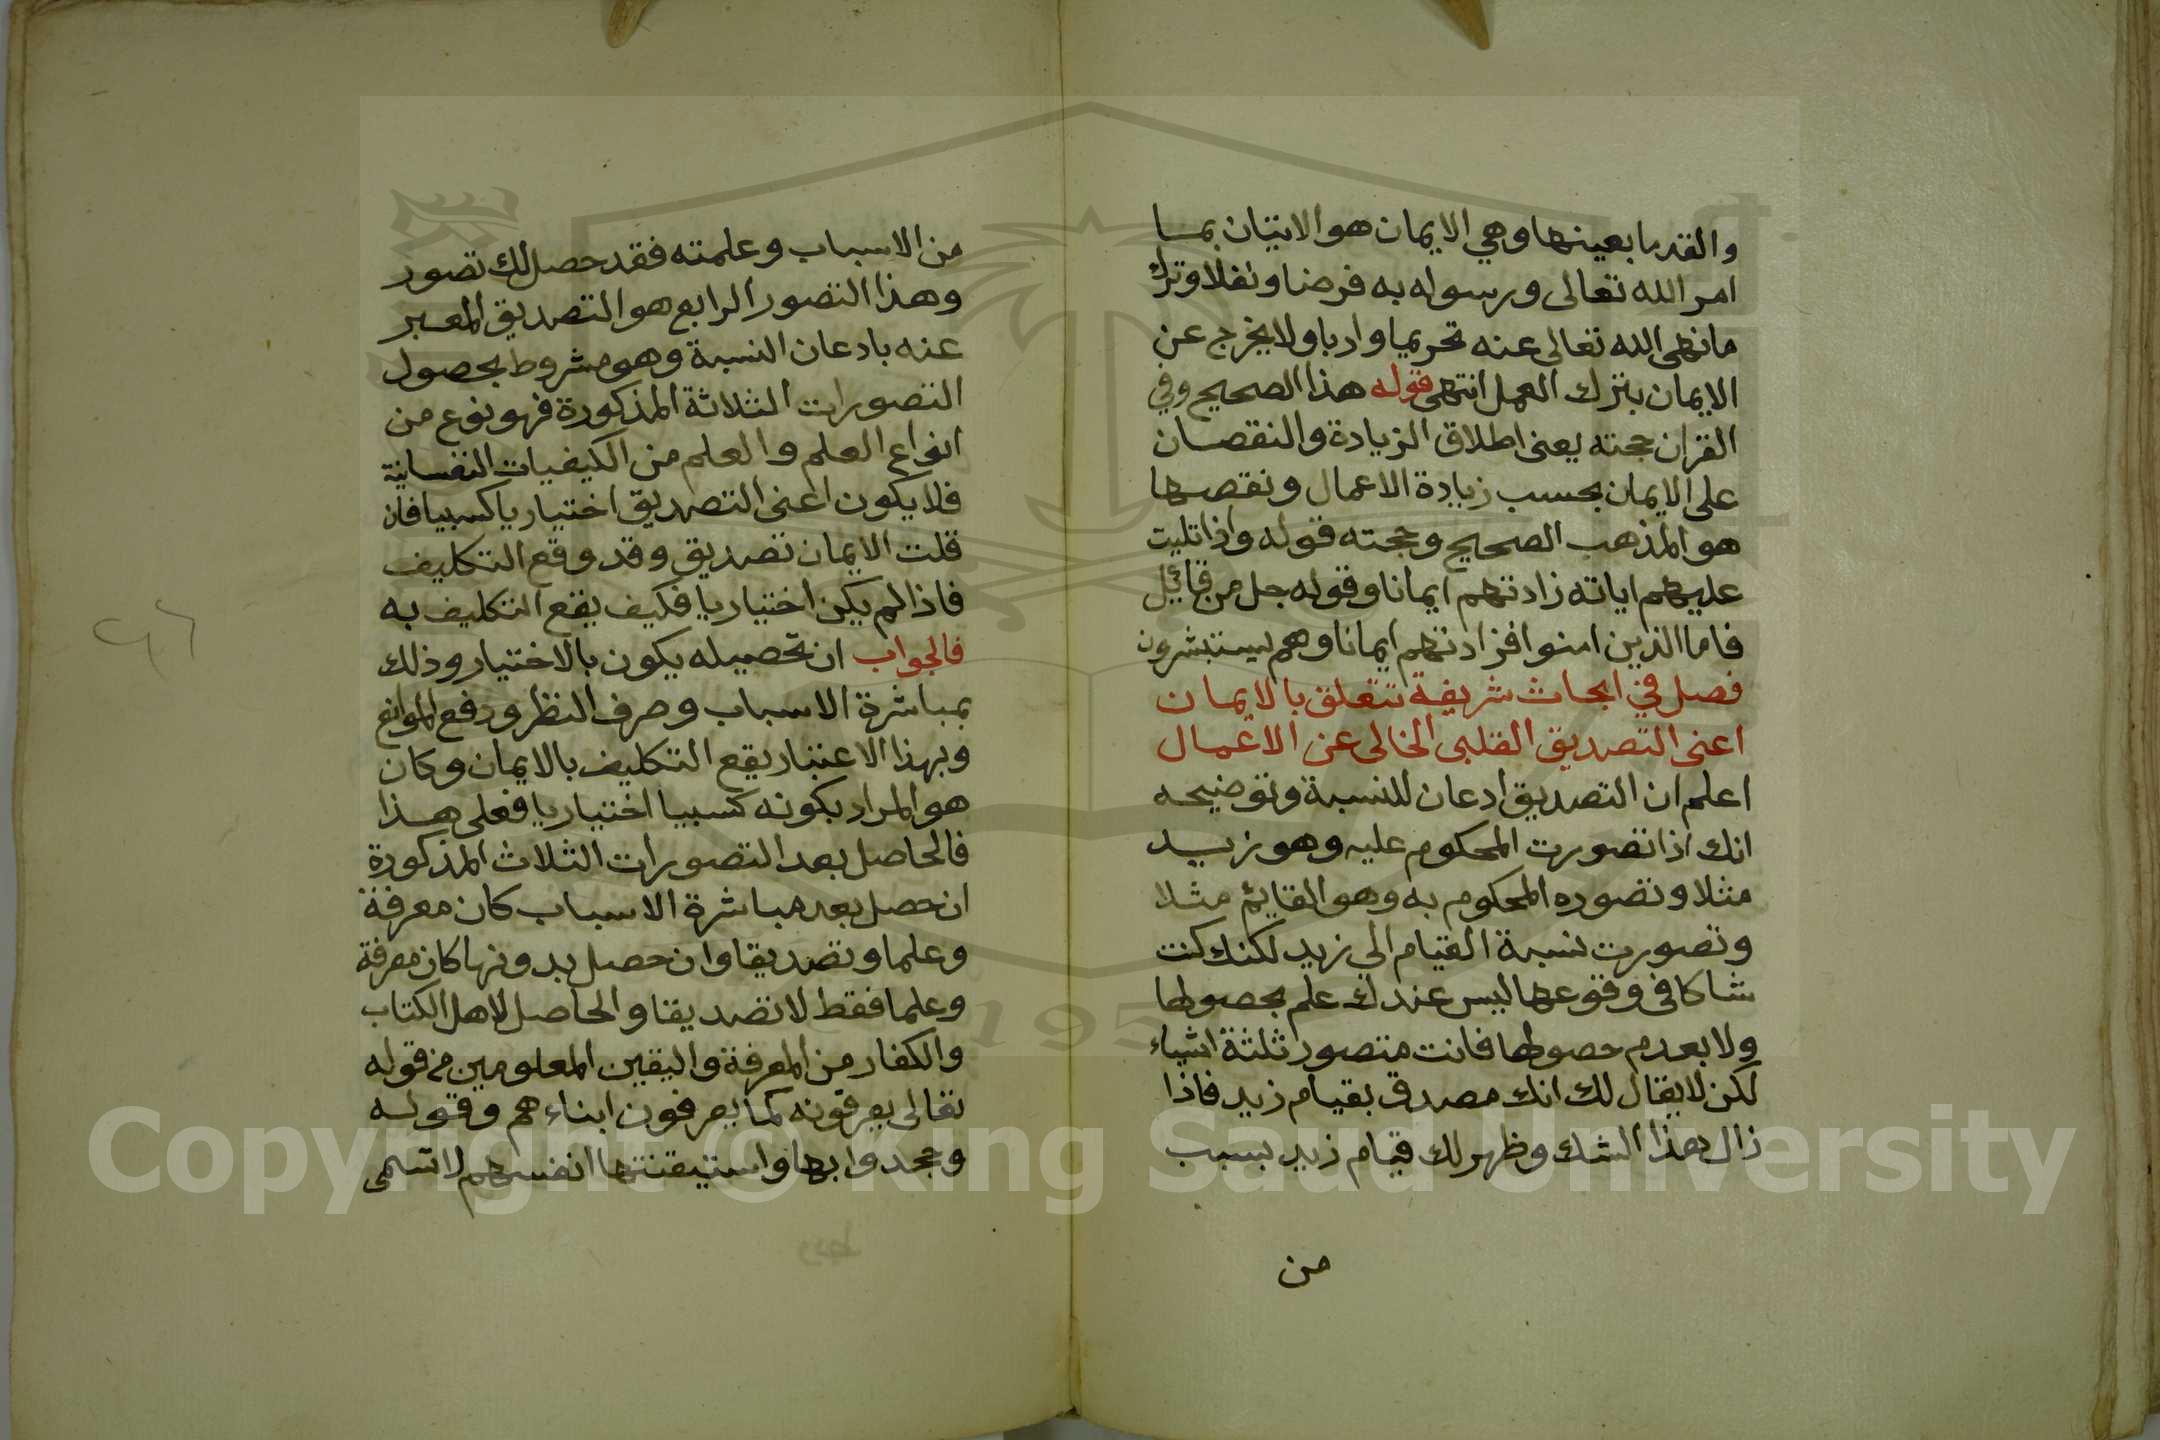 والقدما بعينها وهي الايمان هو الاتيان بمـا
امر الله تعالى ورسوله به فرضا ونفلا وترك
ما نهى الله تعالى عنه تحريما وادبا ولا يخرج عن
الايمان بترك العمل انتهى قوله هذا الصحيح وفي
القران حجته يعنى اطلاق الزيادة والنقصان
على الايمان بحسب زيادة الاعمال ونقصها
هو المذهب الصحيح وحجته قوله واذا تليت
عليهم اياته زادتهم ايمانا وقوله جل من قائل
فاما الذين امنوا فزادتهم ايمانا وهم يستبشرون
فصل في ابحاث شريفة تتعلق بالايمان
اعنى التصديق القلبى الخالى عن الاعمال
اعلم ان التصديق ادعان للنسبة وتوضيحه
انك اذا تصورت المحكوم عليه وهو زيد
مثلا وتصوره المحكوم به وهو القايم مثلا
وتصورت نسبة القيام الى زيد لكنك كنت
شاكا فى وقوعها ليس عندك علم بحصولها
ولا بعدم حصولها فانت متصور ثلثة اشياء
لكن لا يقال لك انك مصدق بقيام زيد فاذا
زال هذا الشك وظهر لك قيام زيد بسبب
من
من الاسباب وعلمته فقد حصل لك تصور
وهذا التصور الرابع هو التصديق المعبر
عنه بادعان النسبة وهو مشروط بحصول
التصورات الثلاثة المذكورة فهو نوع من
انواع العلم والعلم من الكيفيات النفسانية
فلا يكون اعنى التصديق اختياريا كسبيا فان
قلت الايمان تصديق وقد وقع التكليف
فاذا لم يكن اختياريا فكيف يقع التكليف به
فالجواب ان تحصيله يكون بالاختيار وذلك
بمباشرة الاسباب وصرف النظر ودفع الموانع
وبهذا الاعتبار يقع التكليف بالايمان وكان
هو المراد بكونه كسبيا اختياريا فعلى هذا
فالحاصل بعد التصورات الثلاث المذكورة
ان حصل بعد مباشرة الاسباب كان معرفة
وعلما وتصديقا وان حصل بدونها كان معرفة
وعلما فقط لا تصديقا والحاصل لاهل الكتاب
والكفار من المعرفة واليقين المعلومين من قوله
تعالى يعرفونه كما يعرفون ابناءهم وقوله
وجحدوا بها واستيقنتها انفسهم لا تسمى
Copyright © King Saud University